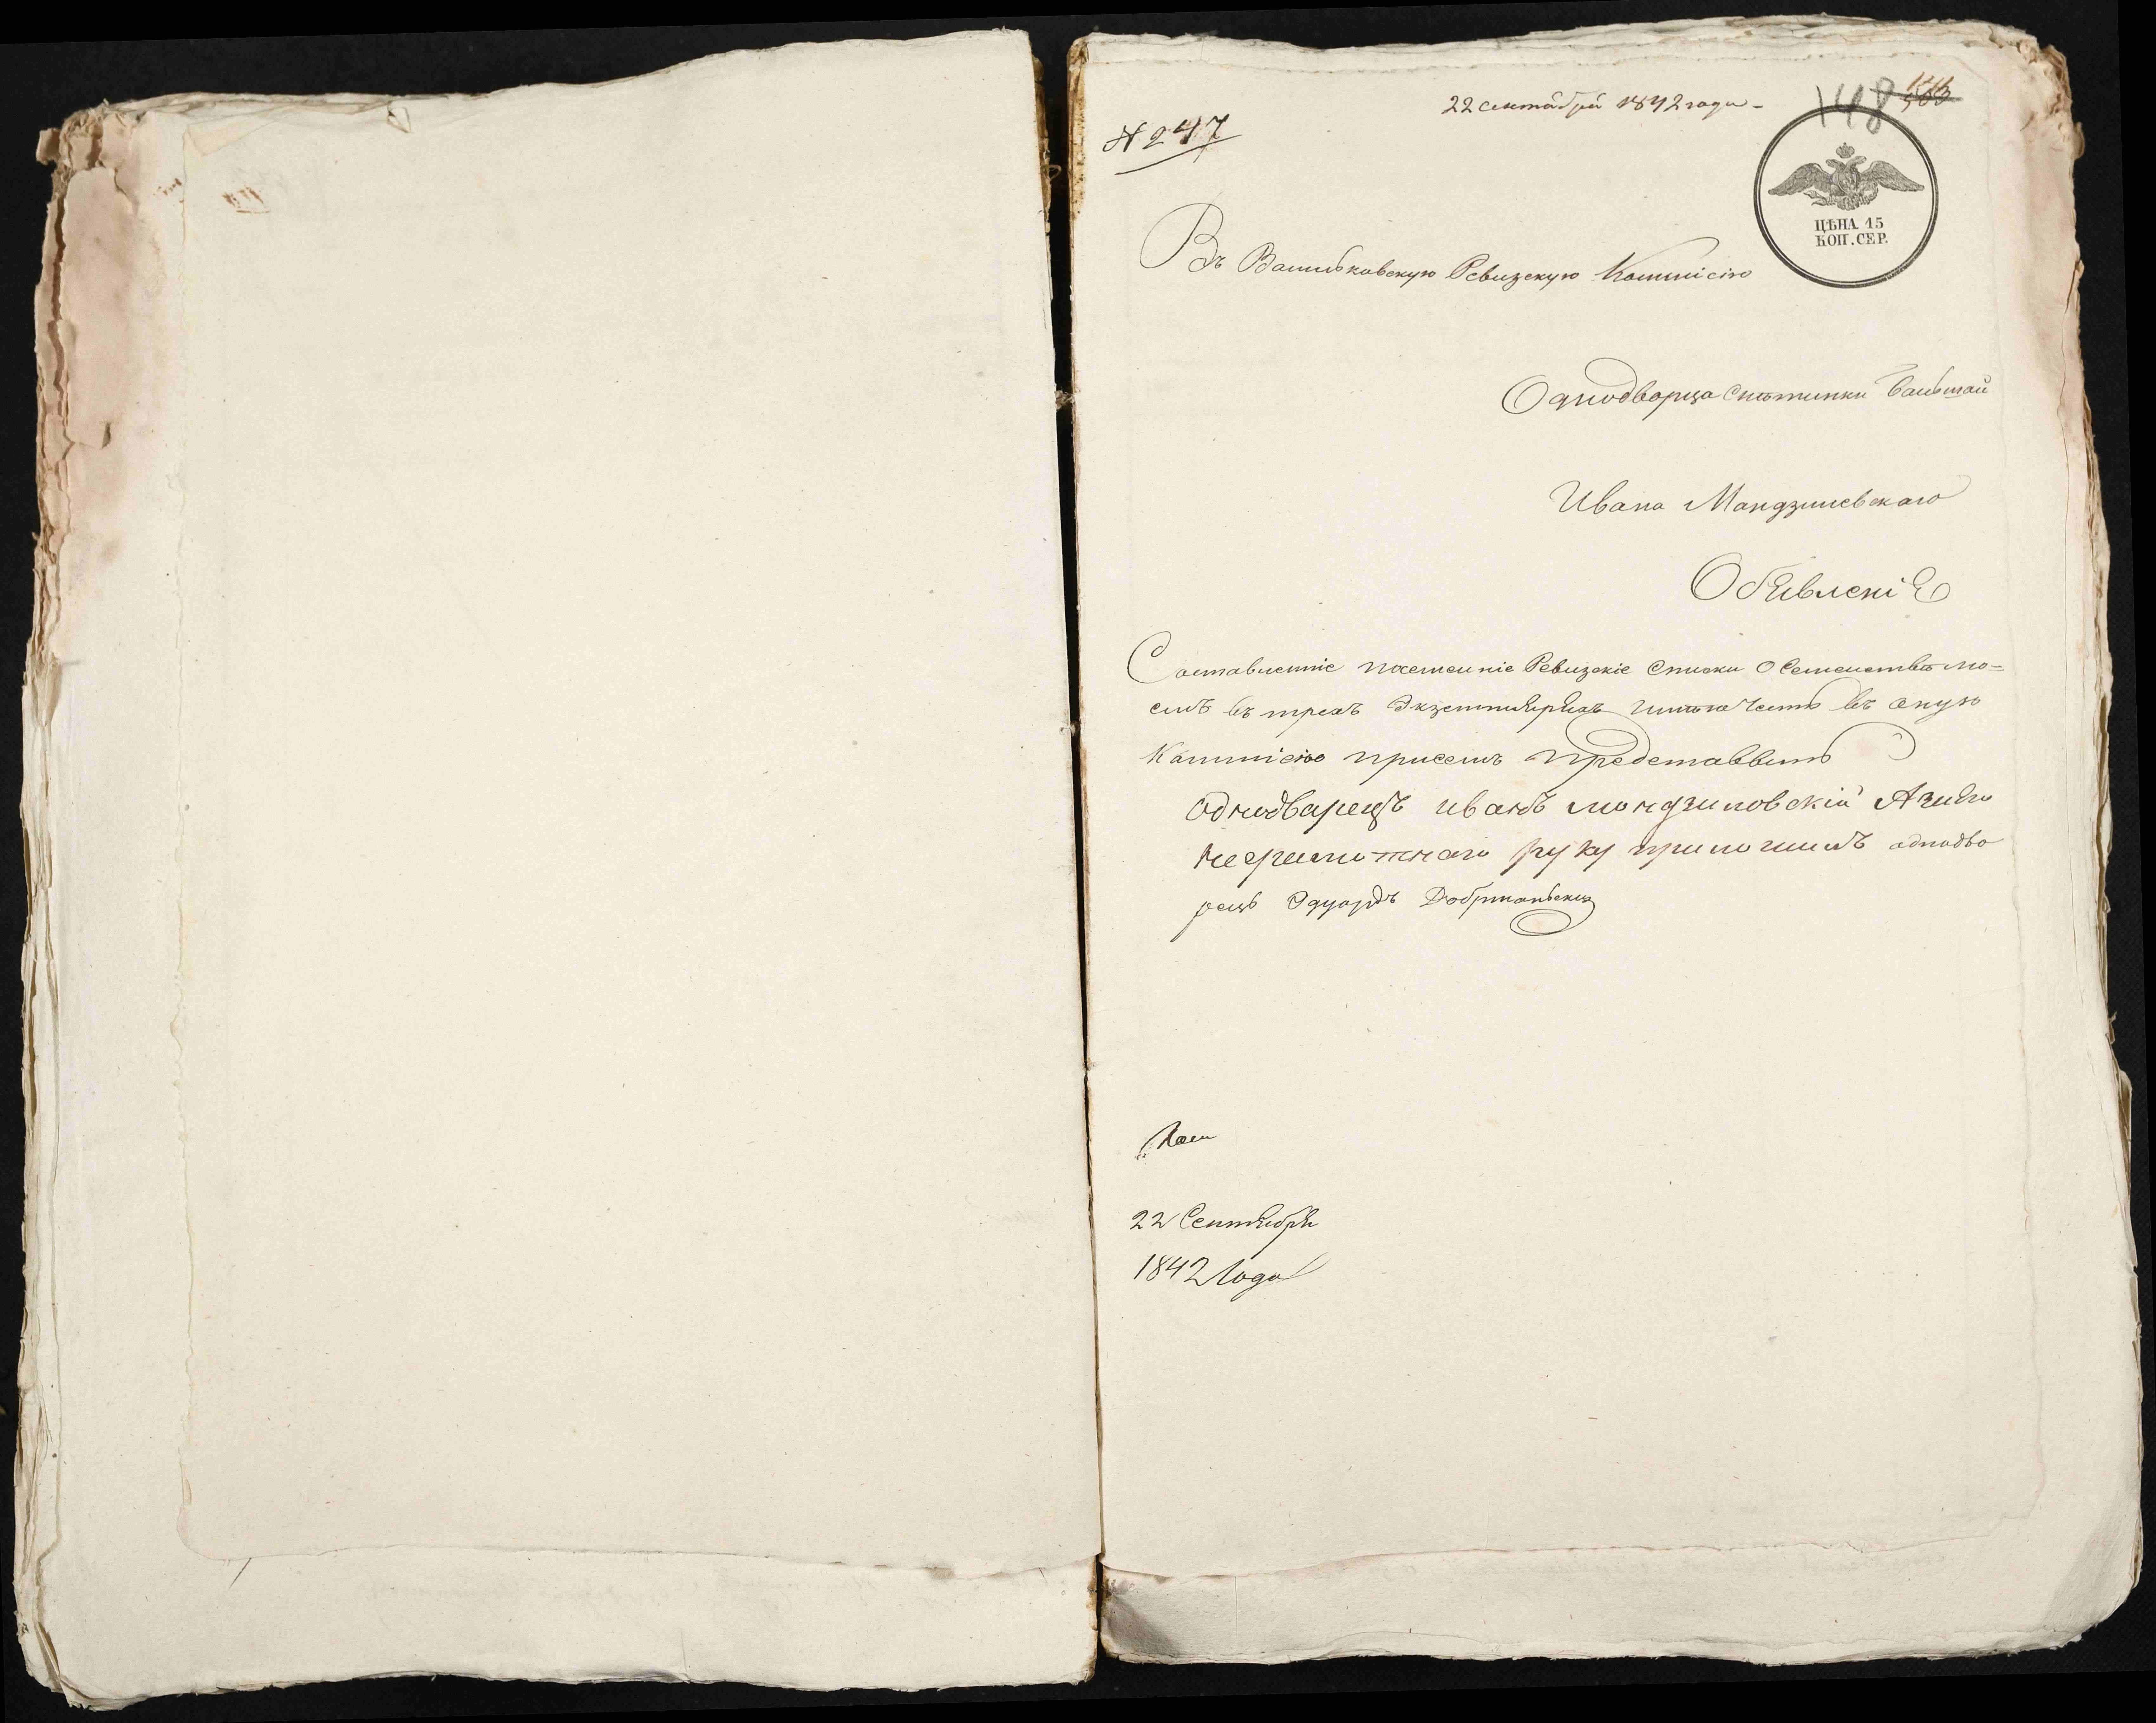 22 сентября 1842 года -
148
№ 247
ЦѢНА 15
КОП. СЕР.
Въ Васильковскую Ревизскую Коммисію
Однодворца
Ивана Мандзилевскаго
Обявленіе
Составленніе Ревизскіе Списки О Семействѣ мо=
емъ въ трехъ Экземплярахъ имѣю Честь въ оную
Коммисію присемъ представвить
однодварецъ иванъ мондзиловскій А занего
неграмотнаго руку приложилъ однодво
рецъ Эдуардъ
22 Сентября
1842 Года